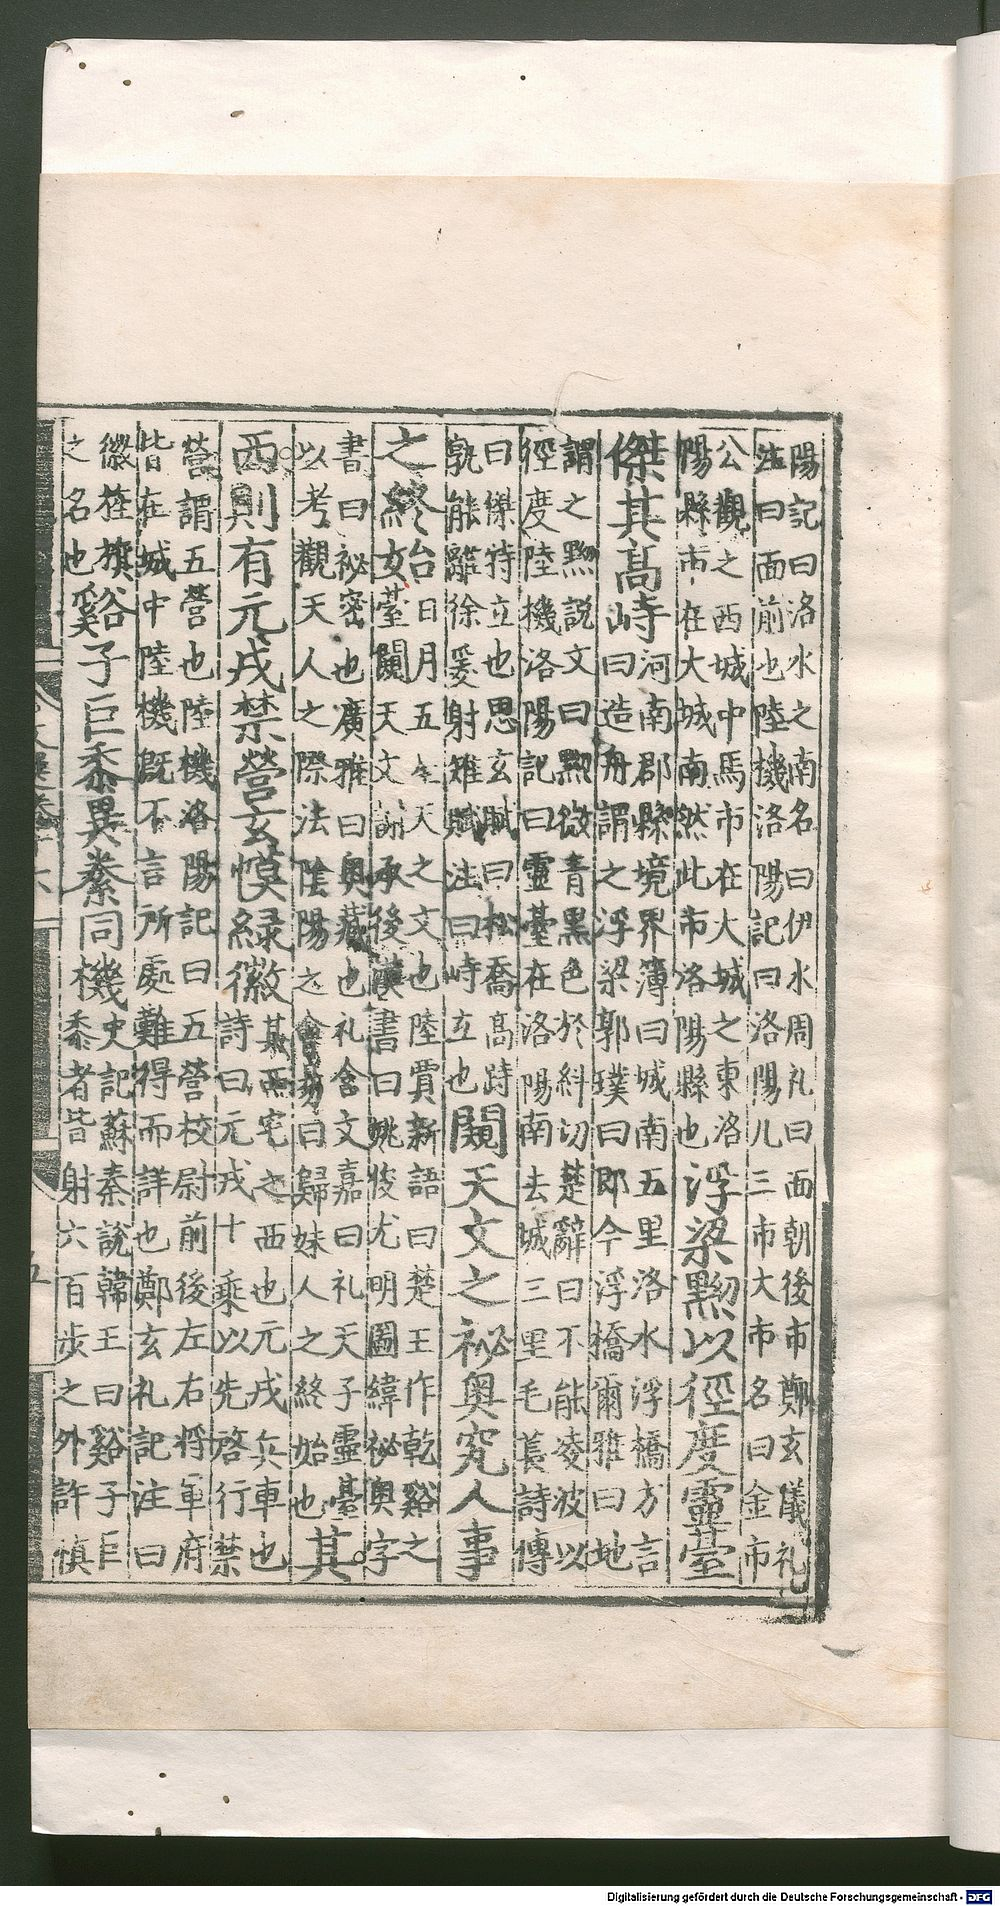 陽記曰洛水之南名曰伊水周礼曰面朝後市鄭玄儀礼
注曰面前也陸機洛陽記曰洛陽凡三市大市名曰金市
公觀之西城中馬市在大城之東洛
陽縣市在大城南然此市洛陽縣也
浮梁黝以徑度靈臺
傑其高峙
河南郡縣境界簿曰城南五里洛水浮橋方言
曰造舟謂之浮梁郭璞曰即今浮橋爾雅曰地
謂之黝說文曰黝微青黑色於糾切楚辭曰不能凌波以
徑度陸機洛陽記曰靈臺在洛陽南去城三里毛萇詩傳
曰傑特立也思玄賦曰松喬高跱
孰能離徐爰射雉賦注曰峙立也
闚天文之祕奥究人事
之終始
日月五天之文也陸賈新語曰楚王作乾谿之
女臺闚天文謝承後漢書曰姚俊尤明圖緯祕奥字
書曰祕密也廣雅曰奥藏也礼含文嘉曰礼天子靈臺
以考觀天人之際法陰陽之會易曰歸妹人之終始也
其
西則有元戎禁營玄幙緑徽
其西宅之西也元戎兵車也
詩曰元戎十乘以先啓行禁
營謂五營也陸機洛陽記曰五營校尉前後左右將軍府
皆在城中陸機既不言所處難得而詳也鄭玄礼記注曰
徽旌旗
之名也
谿子巨黍異絭同機
史記蘇秦說韓王曰谿子巨
黍者皆射六百步之外許慎
五
Digitalisierung gefördert durch die Deutsche Forschungsgemeinschaft - DFG